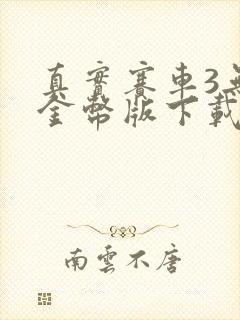 真實賽車3無
金幣版下載
南雲不唐